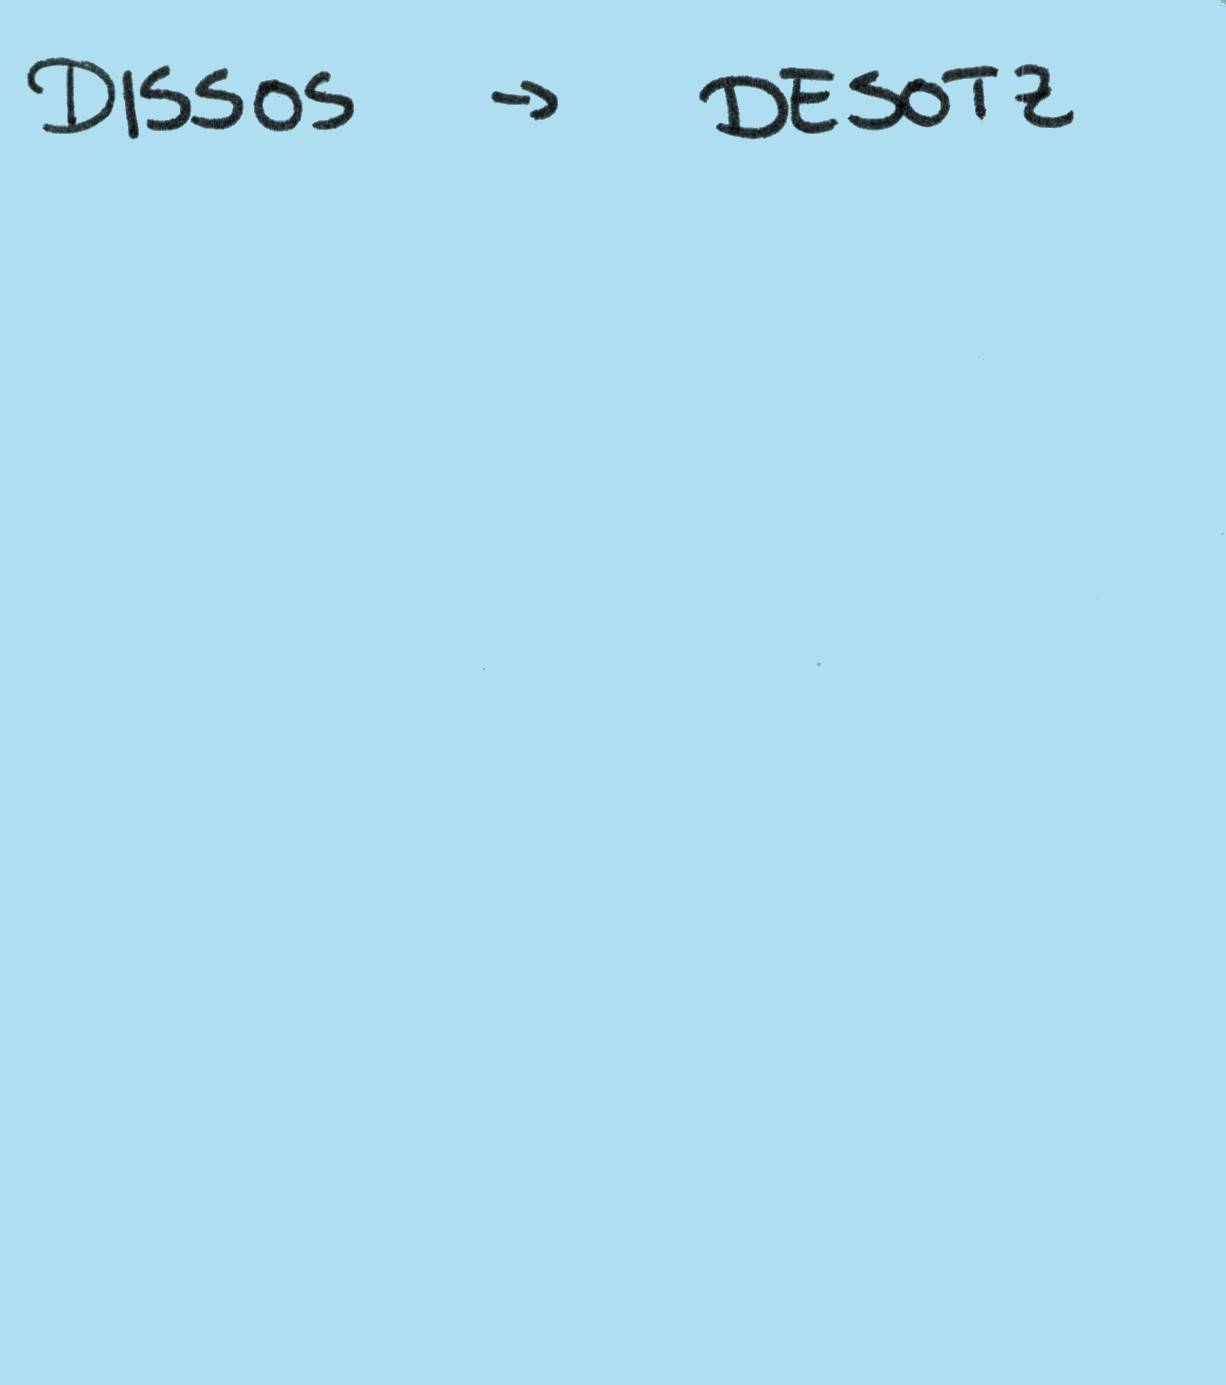 DISSOS → DESOTZ